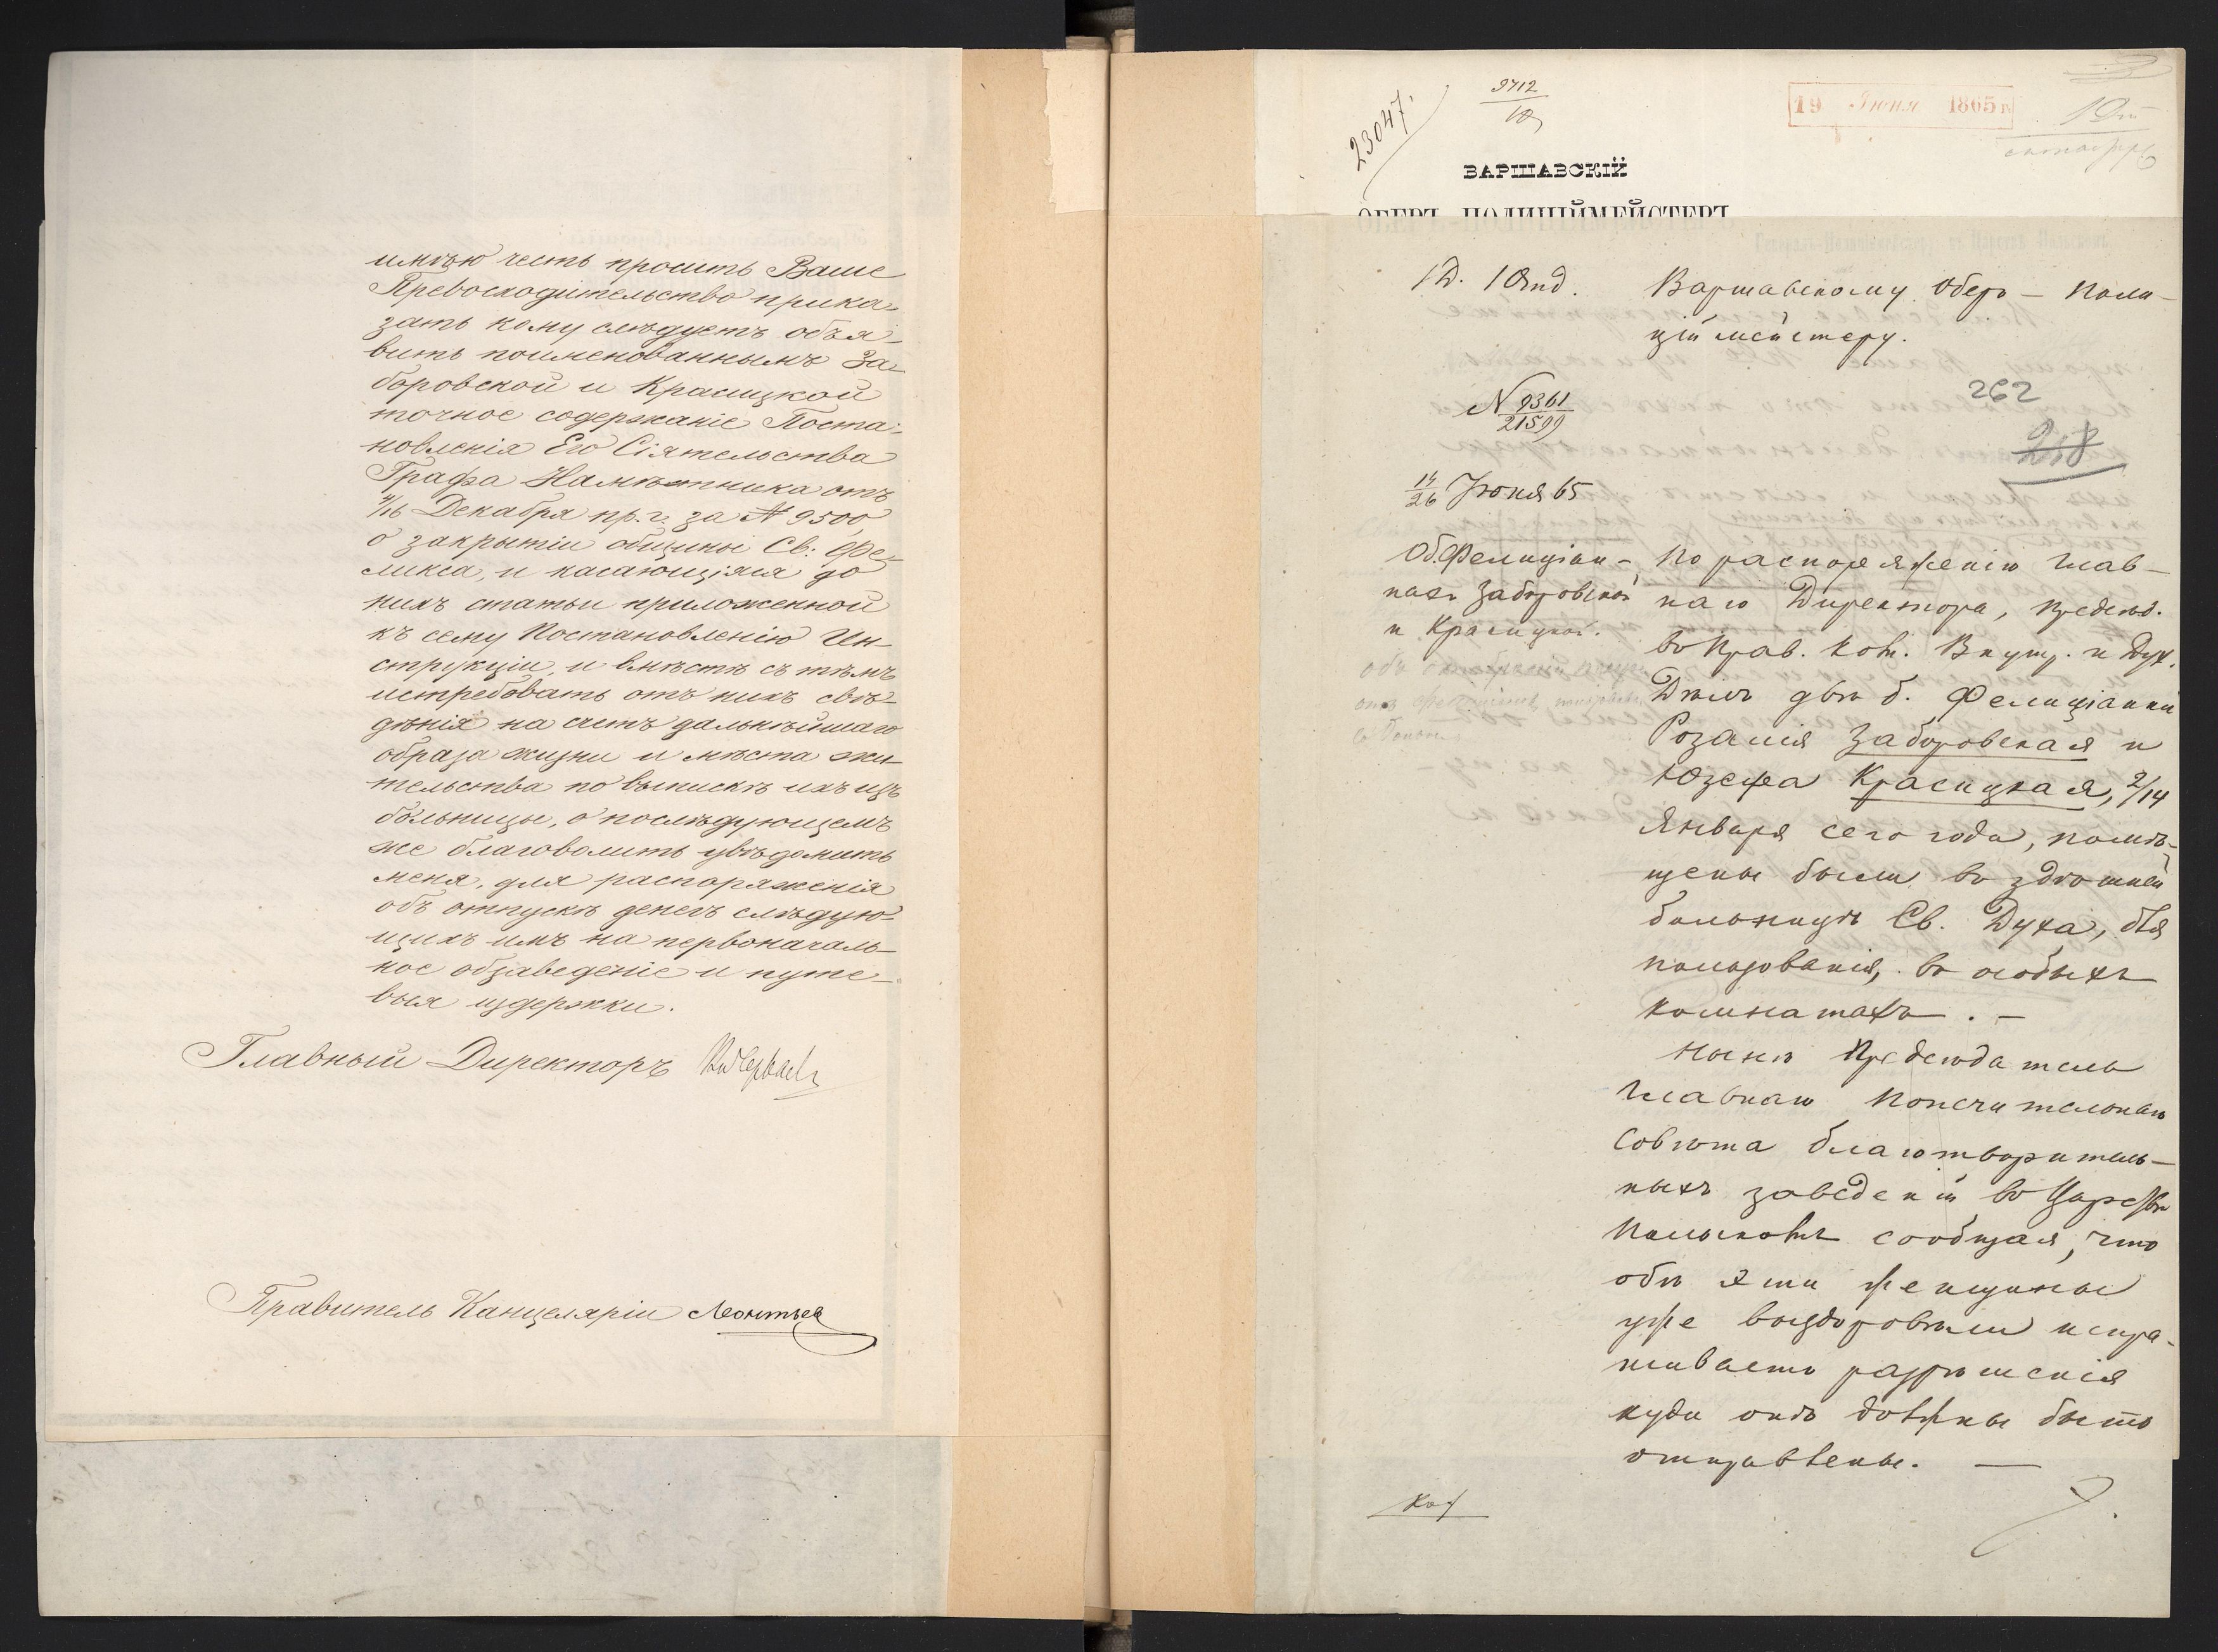 имѣю честь просить Ваше
Превосходительство прика-
зать кому слѣдуетъ объя-
вить поименованнымъ За-
боровской и Красицкой
точное содержаніе Поста-
новленія Его Сіятельства
Графа Намѣстника отъ
4/16 Декабря пр. г. за № 9500,
о закрытіи общины Св: Фе-
ликса, и касающіяся до
нихъ статьи приложенной
къ сему Постановленію Ин-
струкціи, и вмѣстѣ съ тѣмъ
истребовать отъ нихъ свѣ-
дѣнія на счетъ дальнѣйшаго
образа жизни и мѣста жи-
тельства по выпискѣ ихъ изъ
больницы, о послѣдующемъ
же благоволить увѣдомить
меня, для распоряженія
объ отпускѣ денегъ слѣдую-
щихъ имъ на первоначаль-
ное обзаведеніе и путе-
выя издержки.
Главный Директоръ
Правитель Канцеляріи Леонтьев
23047
9712
19 Іюня 1865 г.
ВАРШАВСКІЙ
ОБЕРЪ-ПОЛИЦІЙМЕЙСТЕРЪ
1 Д. 1 Отд.
Варшавскому Оберъ - Поли-
ційместеру.
262
218
№ 9361
21599
14/26 Іюня 65
Об. Феліціан-
кахъ Заборовской
и Красицкой.
По распоряженію Глав-
наго Директора, предсѣд.
въ Прав. Ком. Внутр. и Дух.
Дѣлъ двѣ б. Фелиціанки
Розалія Заборовская и
Юзефа Красицкая, 2/14
Января сего года, помѣ-
щены были въ здѣшней
больницѣ Св. Духа, для
пользованія, въ особыхъ
комнатахъ. -
Нынѣ Предсѣдатель
Главнаго Попечительнаго
Совѣта благотворитель-
ныхъ заведеній въ Царствѣ
Польскомъ сообщая, что
обѣ эти женщины
уже выздоровѣли испра-
шиваетъ разрѣшенія
куда онѣ должны быть
отправлены. —